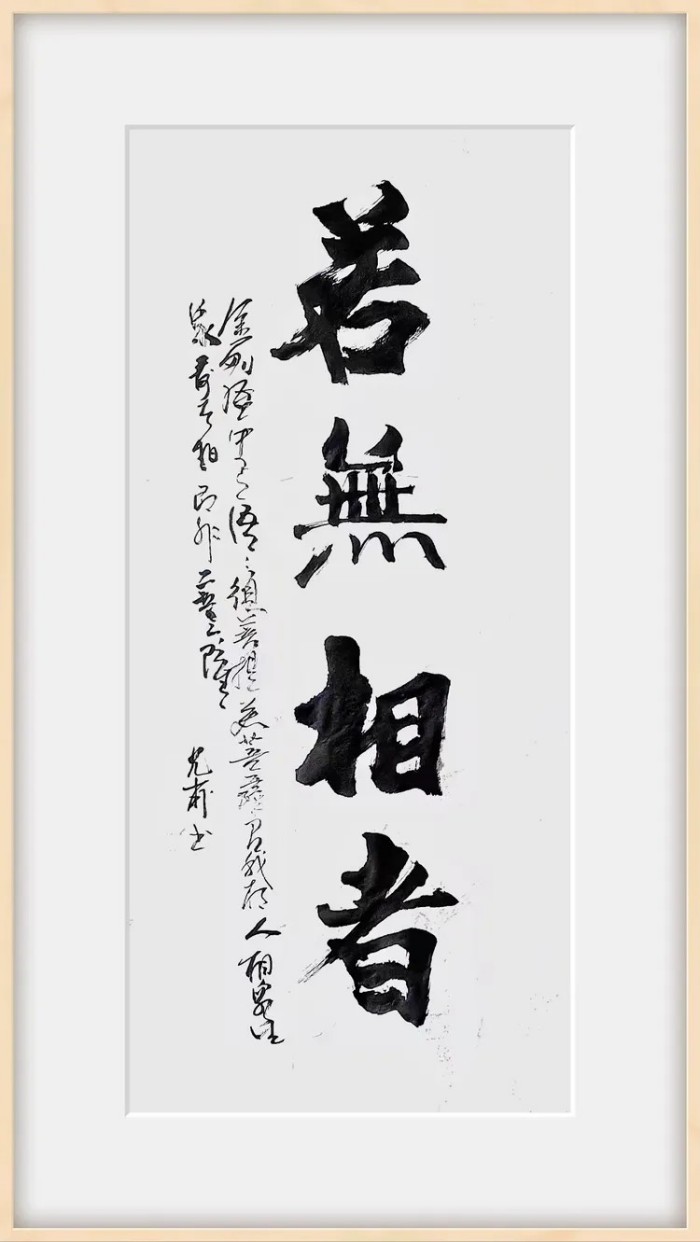 若無相者
金剛經中之語須菩提若菩薩有我相人相眾生
壽者相即非菩薩
书